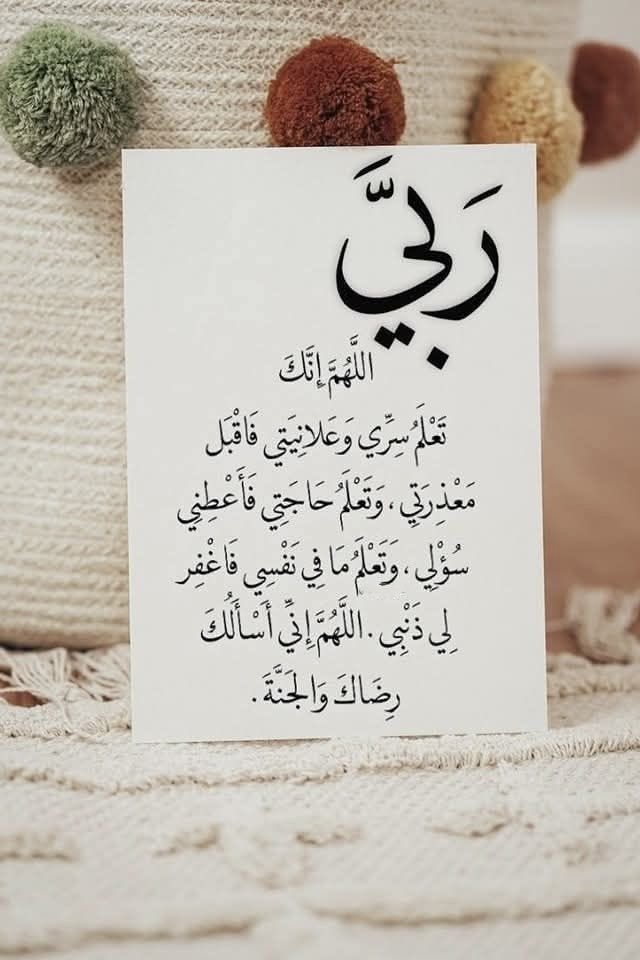 رَبيَّ
اللَّهُمَّ إِنَّكَ
تَعْلَمُ سِرِّي وَعَلانِيَتِي فَاقْبَل
مَعْذِرَتِي ، وَتَعْلَمُ حَاجَتِي فَأَعْطِنِي
سُؤْلِي ، وَتَعْلَمُ مَا فِي نَفْسِي فَاغْفِر
لِي ذَنْبِي . اللَّهُمَّ إِنِّي أَسْأَلُكَ
رِضَاكَ وَالجَنَّةَ .